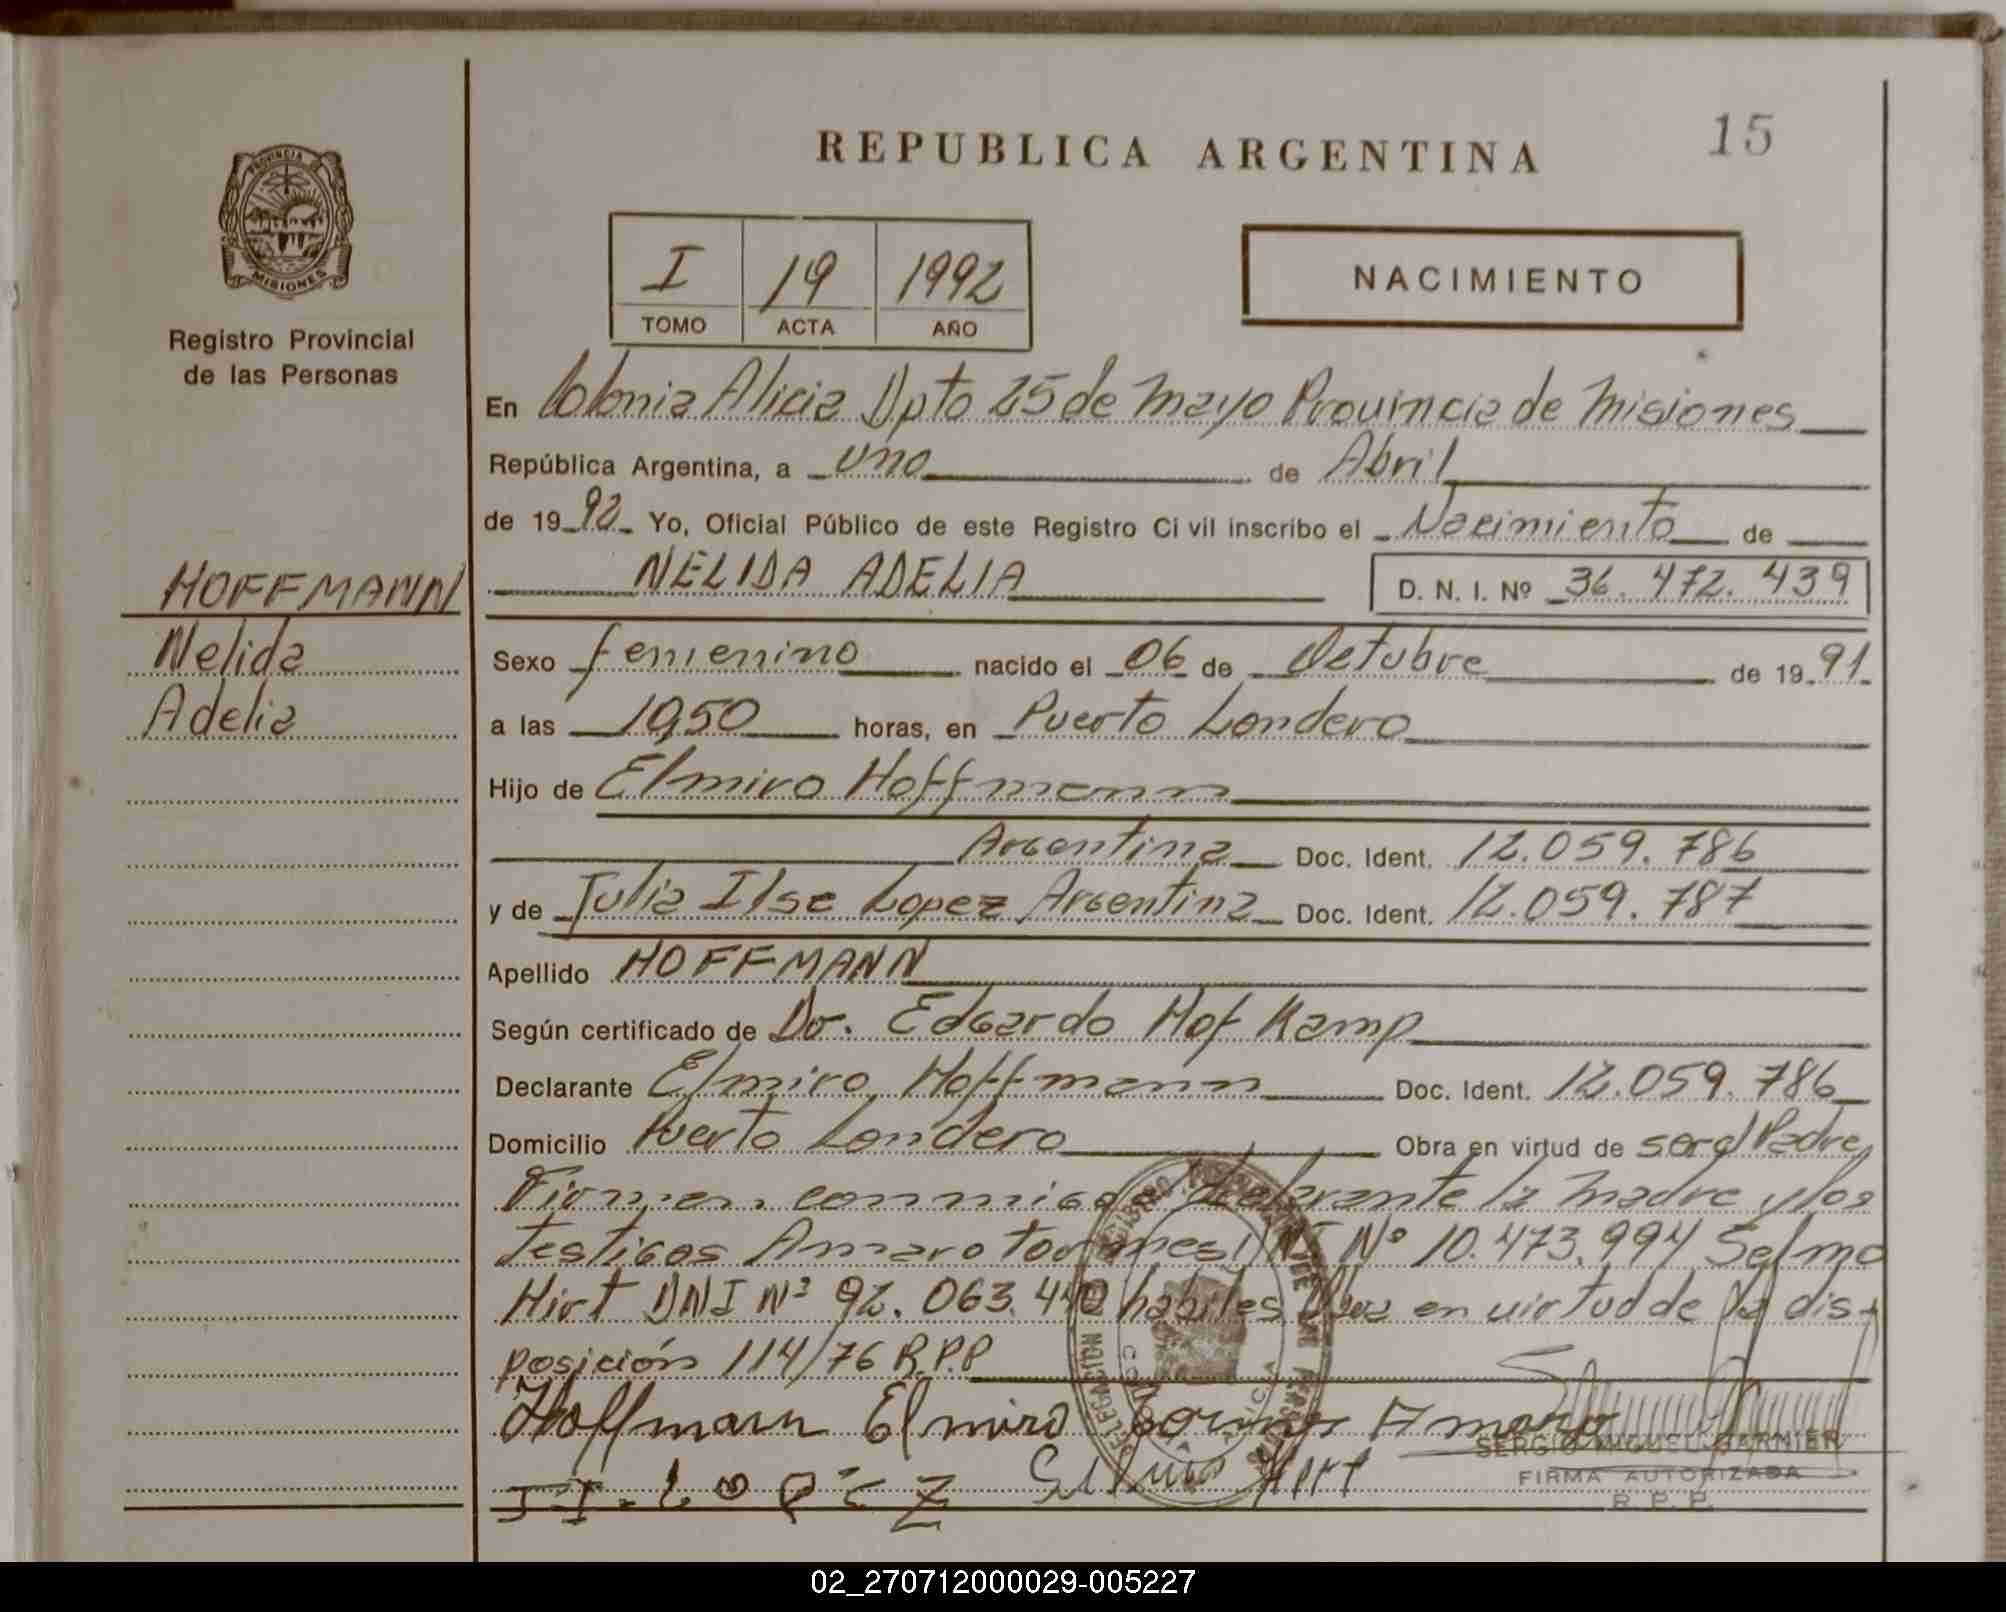 REPUBLICA ARGENTINA
15
PROVINCIA
MISIONES
Registro Provincial
de las Personas
I 19 1992
TOMO ACTA AÑO
NACIMIENTO
En Colonia Alicia Dpto 25 de Mayo Provincia de Misiones
República Argentina, a uno de Abril
de 1992 Yo, Oficial Público de este Registro Civil inscribo el Nacimiento de
NELIDA ADELIA D. N. I. Nº 36.472.439
HOFFMANN
Nelida
Adelia
Sexo femenino nacido el 06 de Octubre de 1991
a las 19,50 horas, en Puerto Londero
Hijo de Elmiro Hoffmann
Argentina Doc. Ident. 12.059.786
y de Julia Ilse Lopez Argentina Doc. Ident. 12.059.787
Apellido HOFFMANN
Según certificado de Dr. Edgardo Hof Kamp
Declarante Elmiro Hoffmann Doc. Ident. 12.059.786
Domicilio Puerto Londero Obra en virtud de ser el Padre
Firman conmigo declarante la madre y los
testigos Amaro DNI Nº 10.473.994 Selmo
Hirt DNI Nº 92.063.440 habiles en virtud de la dis-
posición 114/76 R.P.P
Hoffmann Elmiro Amaro
J I. LOPEZ
SERGIO MIGUEL GARNIER
FIRMA AUTORIZADA
R. P. P.
02_270712000029-005227